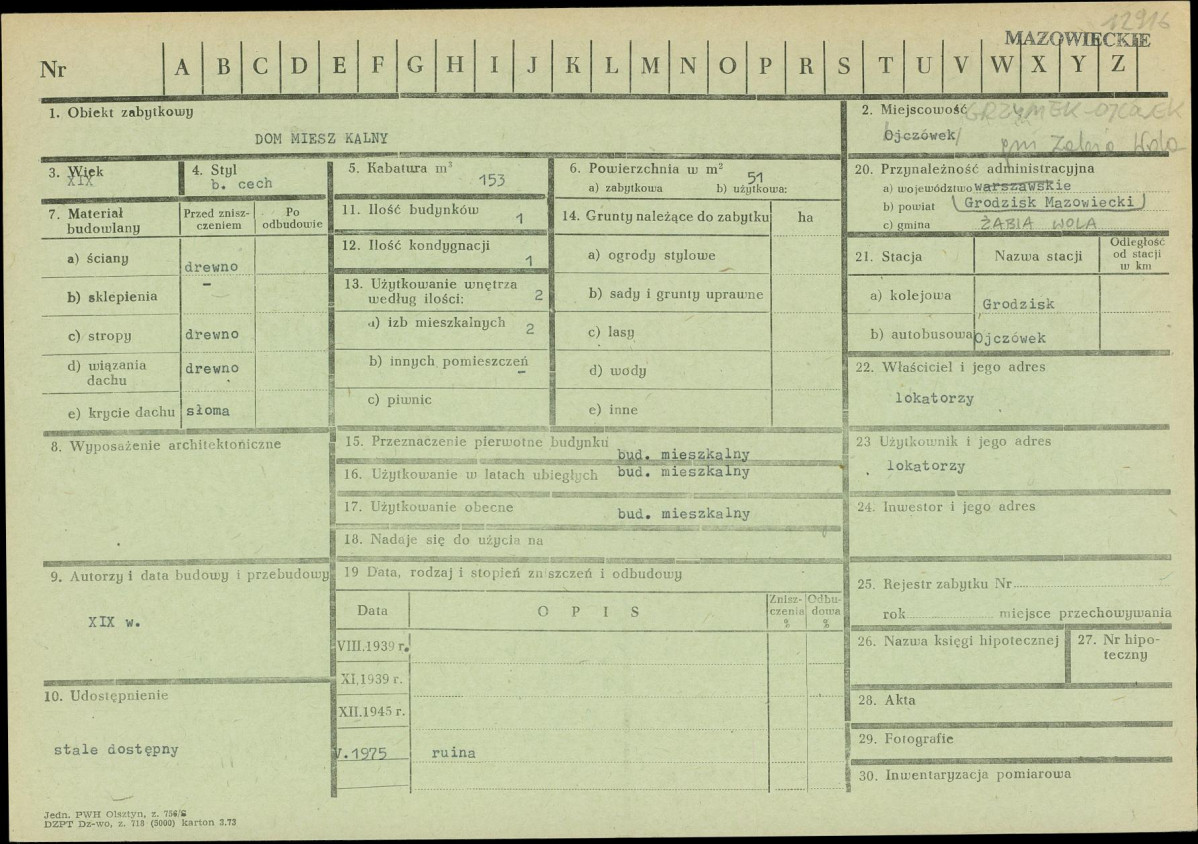 12916
MAZOWIECKIE
Nr A B C D E F G H I J K L M N O P R S T U V W X Y Z
1. Obiekt zabytkowy
DOM MIESZ KALNY
2. Miejscowość GRZYMEK-
Ojczówek
gm Żabia Wola
3. Wiek
XIX
4. Styl
b. cech
5. Kabatura m³
153
6. Powierzchnia w m²
51
a) zabytkowa b) użytkowa:
20. Przynależność administracyjna
a) województwo warszawskie
b) powiat Grodzisk Mazowiecki
c) gmina ŻABIA WOLA
7. Materiał budowlany
Przed zniszczeniem
Po odbudowie
a) ściany drewno
b) sklepienia –
c) stropy drewno
d) wiązania dachu drewno
e) krycie dachu słoma
11. Ilość budynków 1
12. Ilość kondygnacji 1
13. Użytkowanie wnętrza według ilości: 2
a) izb mieszkalnych 2
b) innych pomieszczeń –
c) piwnic
14. Grunty należące do zabytku ha
a) ogrody stylowe
b) sady i grunty uprawne
c) lasy
d) wody
e) inne
21. Stacja Nazwa stacji Odległość od stacji w km
a) kolejowa Grodzisk
b) autobusowa Ojczówek
22. Właściciel i jego adres
lokatorzy
8. Wyposażenie architektoniczne
15. Przeznaczenie pierwotne budynku bud. mieszkalny
16. Użytkowanie w latach ubiegłych bud. mieszkalny
17. Użytkowanie obecne bud. mieszkalny
18. Nadaje się do użycia na
23 Użytkownik i jego adres
lokatorzy
24. Inwestor i jego adres
9. Autorzy i data budowy i przebudowy
XIX w.
19 Data, rodzaj i stopień zniszczeń i odbudowy
Data OPIS Zniszczenia % Odbudowa %
VIII.1939 r.
XI.1939 r.
XII.1945 r.
V.1975 ruina
25. Rejestr zabytku Nr
rok miejsce przechowywania
26. Nazwa księgi hipotecznej
27. Nr hipoteczny
10. Udostępnienie
stale dostępny
28. Akta
29. Fotografie
30. Inwentaryzacja pomiarowa
Jedn. PWH Olsztyn, z. 756/S
DZPT Dz-wo, z. 718 (5000) karton 3.73